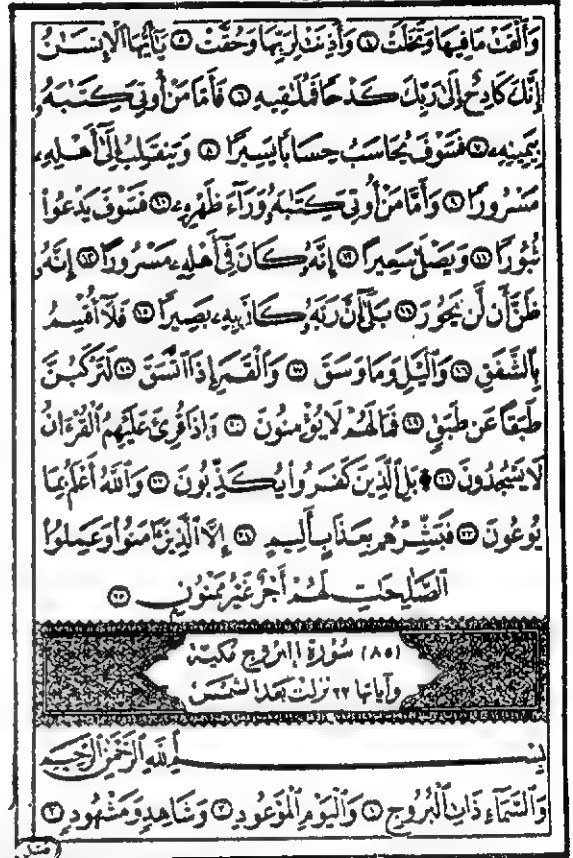 وَأَلْقَتْ مَا فِيهَا وَتَخَلَّتْ ٤ وَأَذِنَتْ لِرَبِّهَا وَحُقَّتْ ٥ يَٰٓأَيُّهَا ٱلْإِنسَٰنُ
إِنَّكَ كَادِحٌ إِلَىٰ رَبِّكَ كَدْحًا فَمُلَٰقِيهِ ٦ فَأَمَّا مَنْ أُوتِىَ كِتَٰبَهُۥ
بِيَمِينِهِۦ ٧ فَسَوْفَ يُحَاسَبُ حِسَابًا يَسِيرًا ٨ وَيَنقَلِبُ إِلَىٰٓ أَهْلِهِۦ
مَسْرُورًا ٩ وَأَمَّا مَنْ أُوتِىَ كِتَٰبَهُۥ وَرَآءَ ظَهْرِهِۦ ١٠ فَسَوْفَ يَدْعُوا۟
ثُبُورًا ١١ وَيَصْلَىٰ سَعِيرًا ١٢ إِنَّهُۥ كَانَ فِىٓ أَهْلِهِۦ مَسْرُورًا ١٣ إِنَّهُۥ
ظَنَّ أَن لَّن يَحُورَ ١٤ بَلَىٰٓ إِنَّ رَبَّهُۥ كَانَ بِهِۦ بَصِيرًا ١٥ فَلَآ أُقْسِمُ
بِٱلشَّفَقِ ١٦ وَٱلَّيْلِ وَمَا وَسَقَ ١٧ وَٱلْقَمَرِ إِذَا ٱتَّسَقَ ١٨ لَتَرْكَبُنَّ
طَبَقًا عَن طَبَقٍ ١٩ فَمَا لَهُمْ لَا يُؤْمِنُونَ ٢٠ وَإِذَا قُرِئَ عَلَيْهِمُ ٱلْقُرْءَانُ
لَا يَسْجُدُونَ ٢١ بَلِ ٱلَّذِينَ كَفَرُوا۟ يُكَذِّبُونَ ٢٢ وَٱللَّهُ أَعْلَمُ بِمَا
يُوعُونَ ٢٣ فَبَشِّرْهُم بِعَذَابٍ أَلِيمٍ ٢٤ إِلَّا ٱلَّذِينَ ءَامَنُوا۟ وَعَمِلُوا۟
ٱلصَّٰلِحَٰتِ لَهُمْ أَجْرٌ غَيْرُ مَمْنُونٍ ٢٥
(٨٥) سُورَةُ البُرُوجِ مَكِيَّة
وآياتها ٢٢ نزلت بعد الشمس
بِسْمِ ٱللَّهِ ٱلرَّحْمَٰنِ ٱلرَّحِيمِ
وَٱلسَّمَآءِ ذَاتِ ٱلْبُرُوجِ ١ وَٱلْيَوْمِ ٱلْمَوْعُودِ ٢ وَشَاهِدٍ وَمَشْهُودٍ ٣